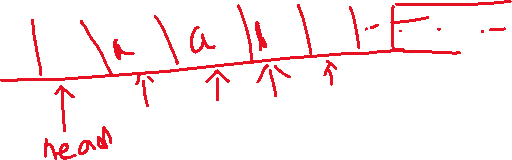 a a b
head